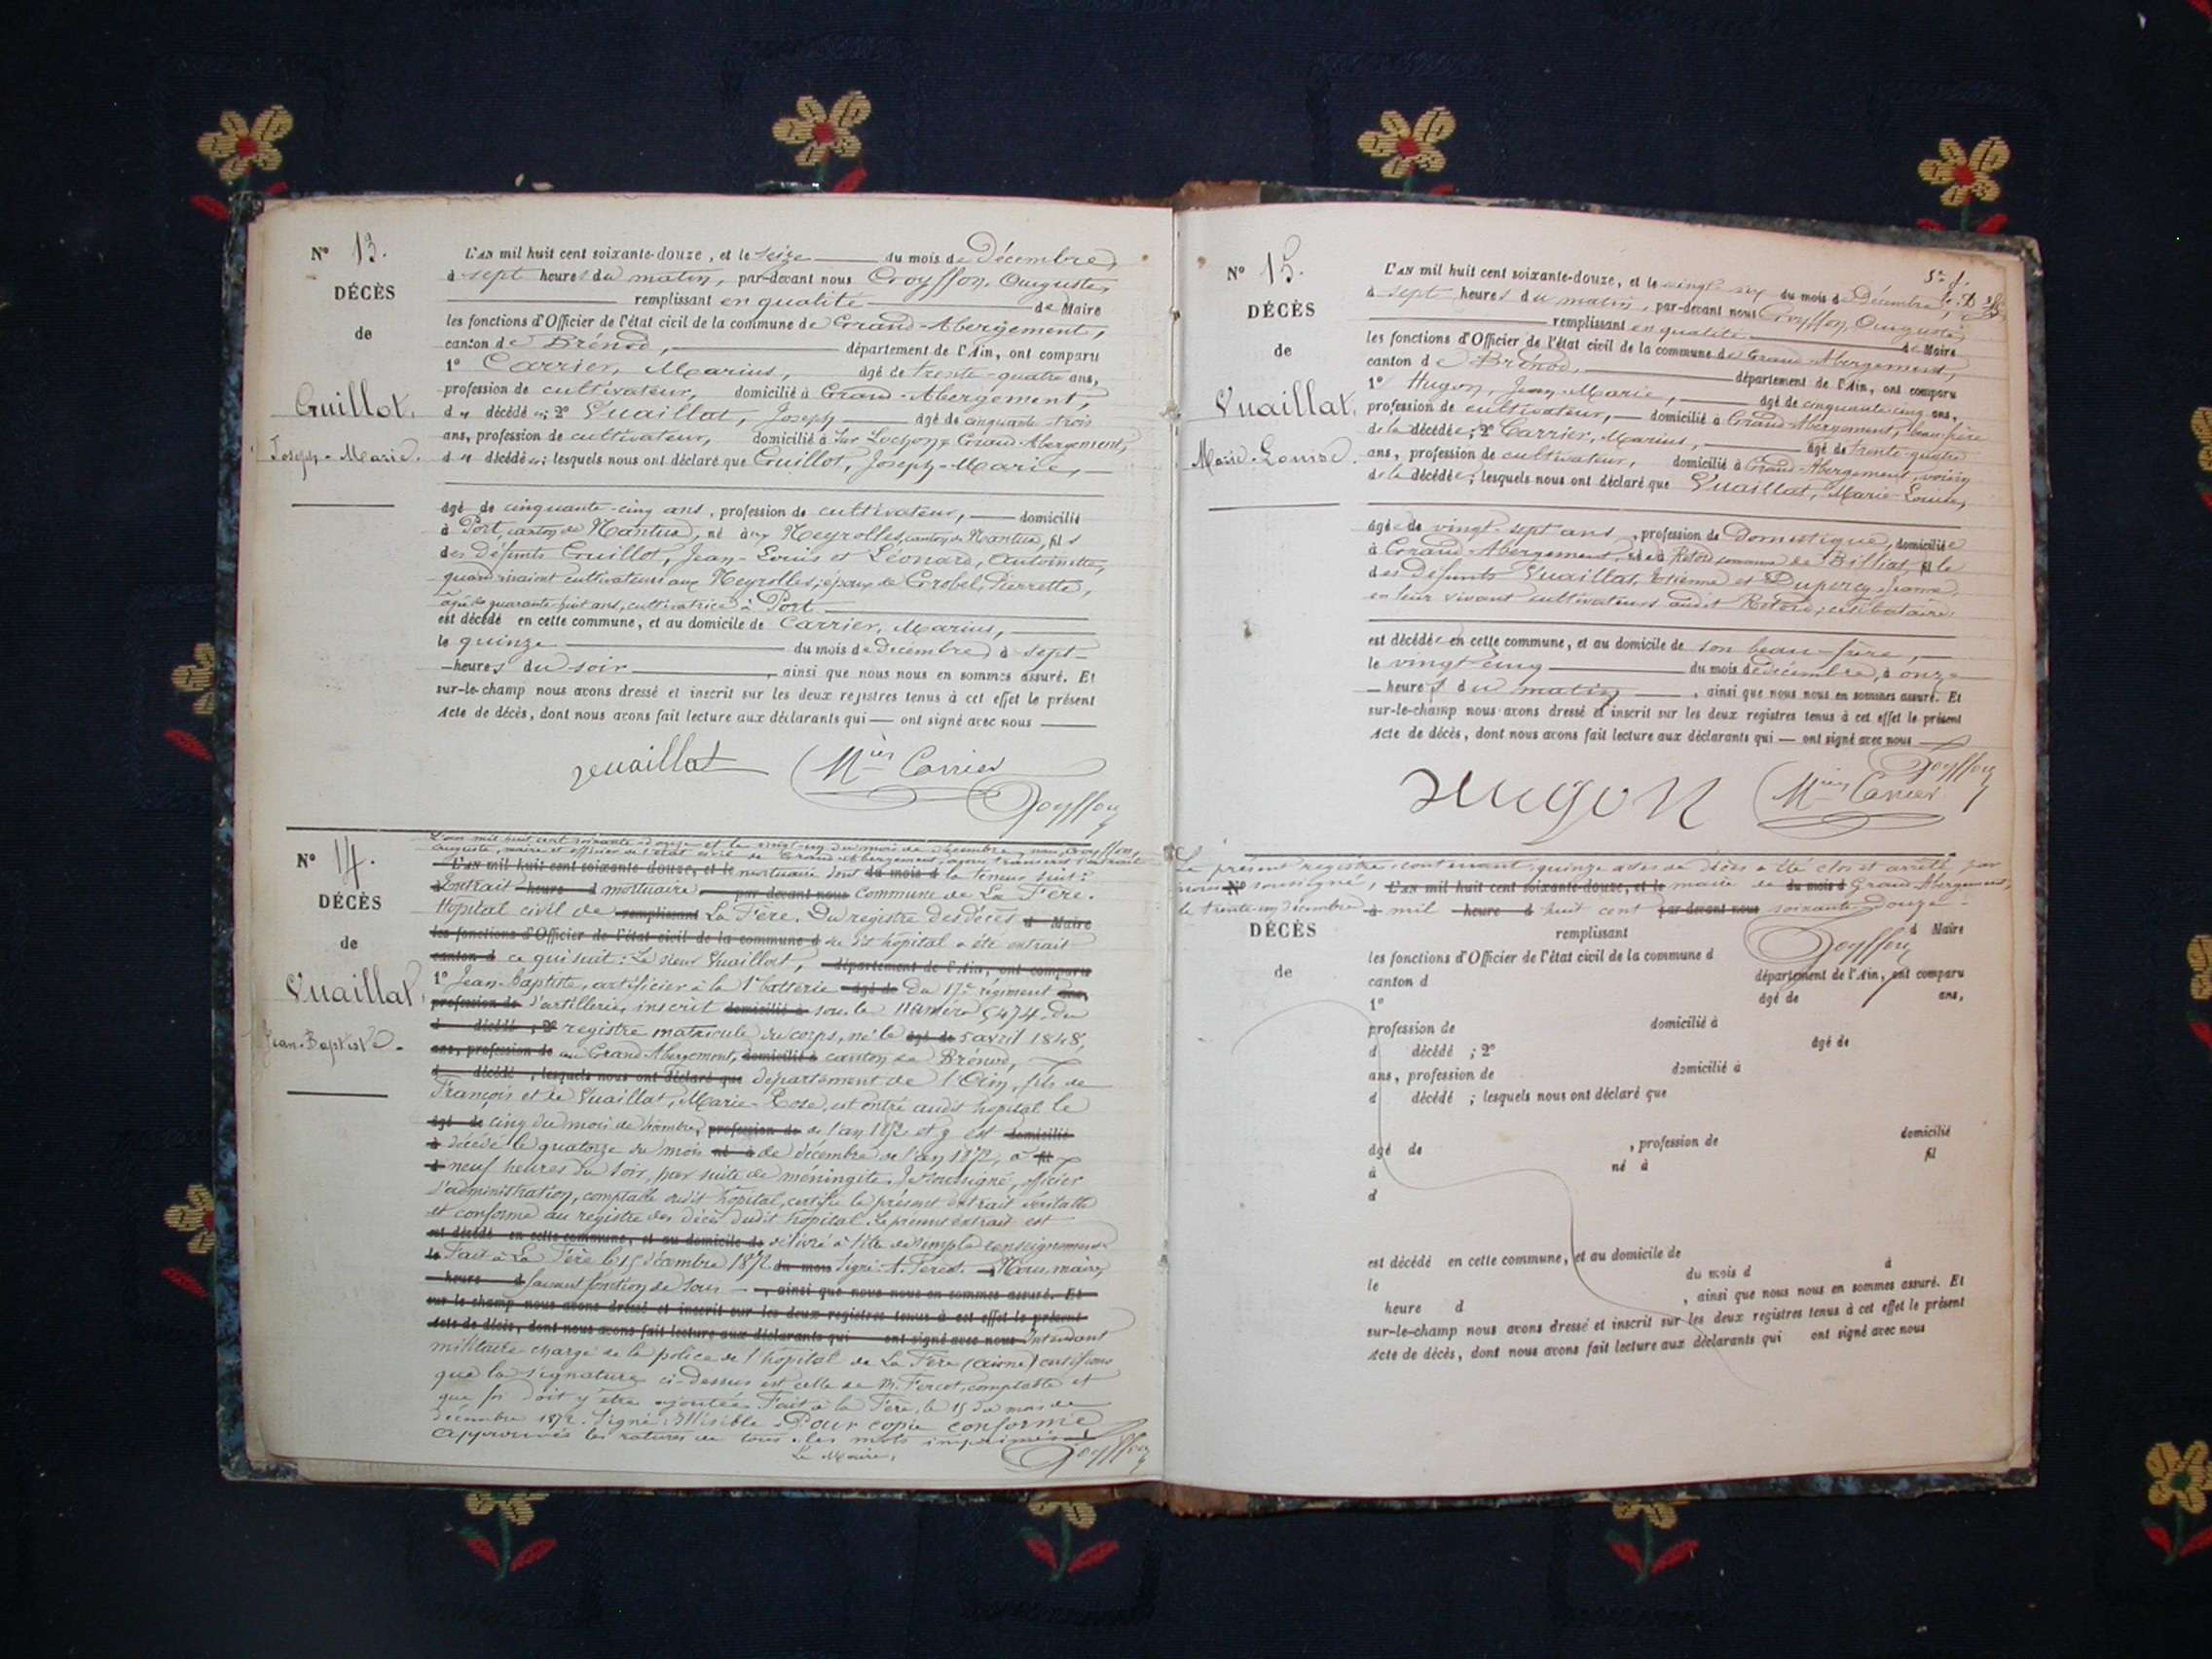 N° 13.
DÉCÈS
de
Guillot,
Joseph-Marie.
L'AN mil huit cent soixante-douze, et le seize du mois de Décembre,
à sept heures du matin, par-devant nous Goyffon, Auguste,
remplissant en qualité de Maire
les fonctions d'Officier de l'état civil de la commune de Grand-Abergement,
canton de Brénod, département de l'Ain, ont comparu
1° Carrier, Marius, âgé de trente-quatre ans,
profession de cultivateur, domicilié à Grand-Abergement,
d décédé ; 2° Vuaillat, Joseph âgé de cinquante-trois
ans, profession de cultivateur, domicilié à Sur Lochon, Grand-Abergement,
d décédé ; lesquels nous ont déclaré que Guillot, Joseph-Marie,
âgé de cinquante-cinq ans, profession de cultivateur, domicilié
à Port, canton de Nantua, né aux Neyrolles, canton de Nantua, fils
des défunts Guillot, Jean-Louis et Léonard, Antoinette,
quand vivaient cultivateurs aux Neyrolles; époux de Grobel, Pierrette,
âgée de quarante-huit ans, cultivatrice à Port.
est décédé en cette commune, et au domicile de Carrier, Marius,
le quinze du mois de décembre, à sept
heures du soir, ainsi que nous nous en sommes assuré. Et
sur-le-champ nous avons dressé et inscrit sur les deux registres tenus à cet effet le présent
Acte de décès, dont nous avons fait lecture aux déclarants qui ont signé avec nous
Vuaillat Mius Carrier
Goyffon
N° 14.
DÉCÈS
de
Vuaillat,
Jean-Baptiste.
L'an mil huit cent soixante-douze et le vingt-un du mois de décembre, nous Goyffon,
Auguste, maire et officier de l'état civil de Grand-Abergement, avons transcrit l'extrait
L'AN mil huit cent soixante-douze, et le mortuaire dont du mois d la teneur suit:
à Extrait heure d mortuaire par-devant nous Commune de La Fère.
Hôpital civil de remplissant La Fère. Du registre des décès d Maire
les fonctions d'Officier de l'état civil de la commune d du dit hôpital a été extrait
canton d ce qui suit: Le sieur Vuaillat, département de l'Ain, ont comparu
1° Jean-Baptiste, artificier à la 1e batterie âgé de du 17e régiment ans,
profession de d'artillerie, inscrit domicilié à sous le numéro 5474 du
d décédé ; 2° registre matricule du corps, né le âgé de 5 avril 1848,
ans, profession de au Grand-Abergement, domicilié à canton de Brénod,
d décédé ; lesquels nous ont déclaré que département de l'Ain, fils de
François et de Vuaillat, Marie-Rose, est entré audit hôpital le
âgé de cinq du mois de profession de de l'an 1872 et y est domicilié
à décédé le quatorze du mois né à de décembre de l'an 1872, à fil
d neuf heures du soir, par suite de méningite. Je soussigné, officier
d'administration, comptable dudit hôpital, certifie le présent extrait véritable
et conforme au registre des décès dudit hôpital. Le présent extrait est
est décédé en cette commune, et au domicile de délivré à titre de simple renseignement.
le Fait à La Fère le 15 décembre 1872 du mois Signé: A. Fercot. Nous, maire,
heure d faisant fonction de sous ainsi que nous nous en sommes assuré. Et
sur-le-champ nous avons dressé et inscrit sur les deux registres tenus à cet effet le présent
Acte de décès, dont nous avons fait lecture aux déclarants qui ont signé avec nous Intendant
militaire chargé de la police de l'hôpital de La Fère (Aisne) certifions
que la signature ci-dessus est celle de M. Fercot, comptable et
que foi doit y être ajoutée. Fait à la Fère, le 15 du mois de
décembre 1872. Signé: Illisible. Pour copie conforme
Approuvés les ratures de tous les mots imprimés.
Le Maire, Goyffon
N° 15.
DÉCÈS
de
Vuaillat,
Marie-Louise.
L'AN mil huit cent soixante-douze, et le vingt-six du mois de Décembre,
à sept heures du matin, par-devant nous Goyffon, Auguste,
remplissant en qualité de Maire
les fonctions d'Officier de l'état civil de la commune de Grand-Abergement,
canton de Brénod, département de l'Ain, ont comparu
1° Hugon, Jean-Marie, âgé de cinquante-cinq ans,
profession de cultivateur, domicilié à Grand-Abergement, beau-frère
de la décédée; 2° Carrier, Marius, âgé de trente-quatre
ans, profession de cultivateur, domicilié à Grand-Abergement, voisin
de la décédée; lesquels nous ont déclaré que Vuaillat, Marie-Louise,
âgée de vingt-sept ans, profession de Domestique, domiciliée
à Grand-Abergement, née à Retord commune de Billiat, fille
des défunts Vuaillat, Etienne et Dupercy, Jeanne,
en leur vivant cultivateurs audit Retord; célibataire.
est décédée en cette commune, et au domicile de son beau-frère,
le vingt-cinq du mois de décembre, à onze
heures du matin, ainsi que nous nous en sommes assuré. Et
sur-le-champ nous avons dressé et inscrit sur les deux registres tenus à cet effet le présent
Acte de décès, dont nous avons fait lecture aux déclarants qui ont signé avec nous
Goyffon
Hugon Mius Carrier
Le présent registre, contenant quinze actes de décès a été clos et arrêté par
nous N° soussigné, L'AN mil huit cent soixante-douze, et le maire de du mois d Grand-Abergement,
le trente-un décembre à mil heure d huit cent par-devant nous soixante-douze.
DÉCÈS
de
remplissant d Maire
Goyffon
les fonctions d'Officier de l'état civil de la commune d
canton d département de l'Ain, ont comparu
1° âgé de ans,
profession de domicilié à
d décédé ; 2° âgé de
ans, profession de domicilié à
d décédé ; lesquels nous ont déclaré que
âgé de , profession de domicilié
à né à fil
d
est décédé en cette commune, et au domicile de
le du mois d à
heure d , ainsi que nous nous en sommes assuré. Et
sur-le-champ nous avons dressé et inscrit sur les deux registres tenus à cet effet le présent
Acte de décès, dont nous avons fait lecture aux déclarants qui ont signé avec nous